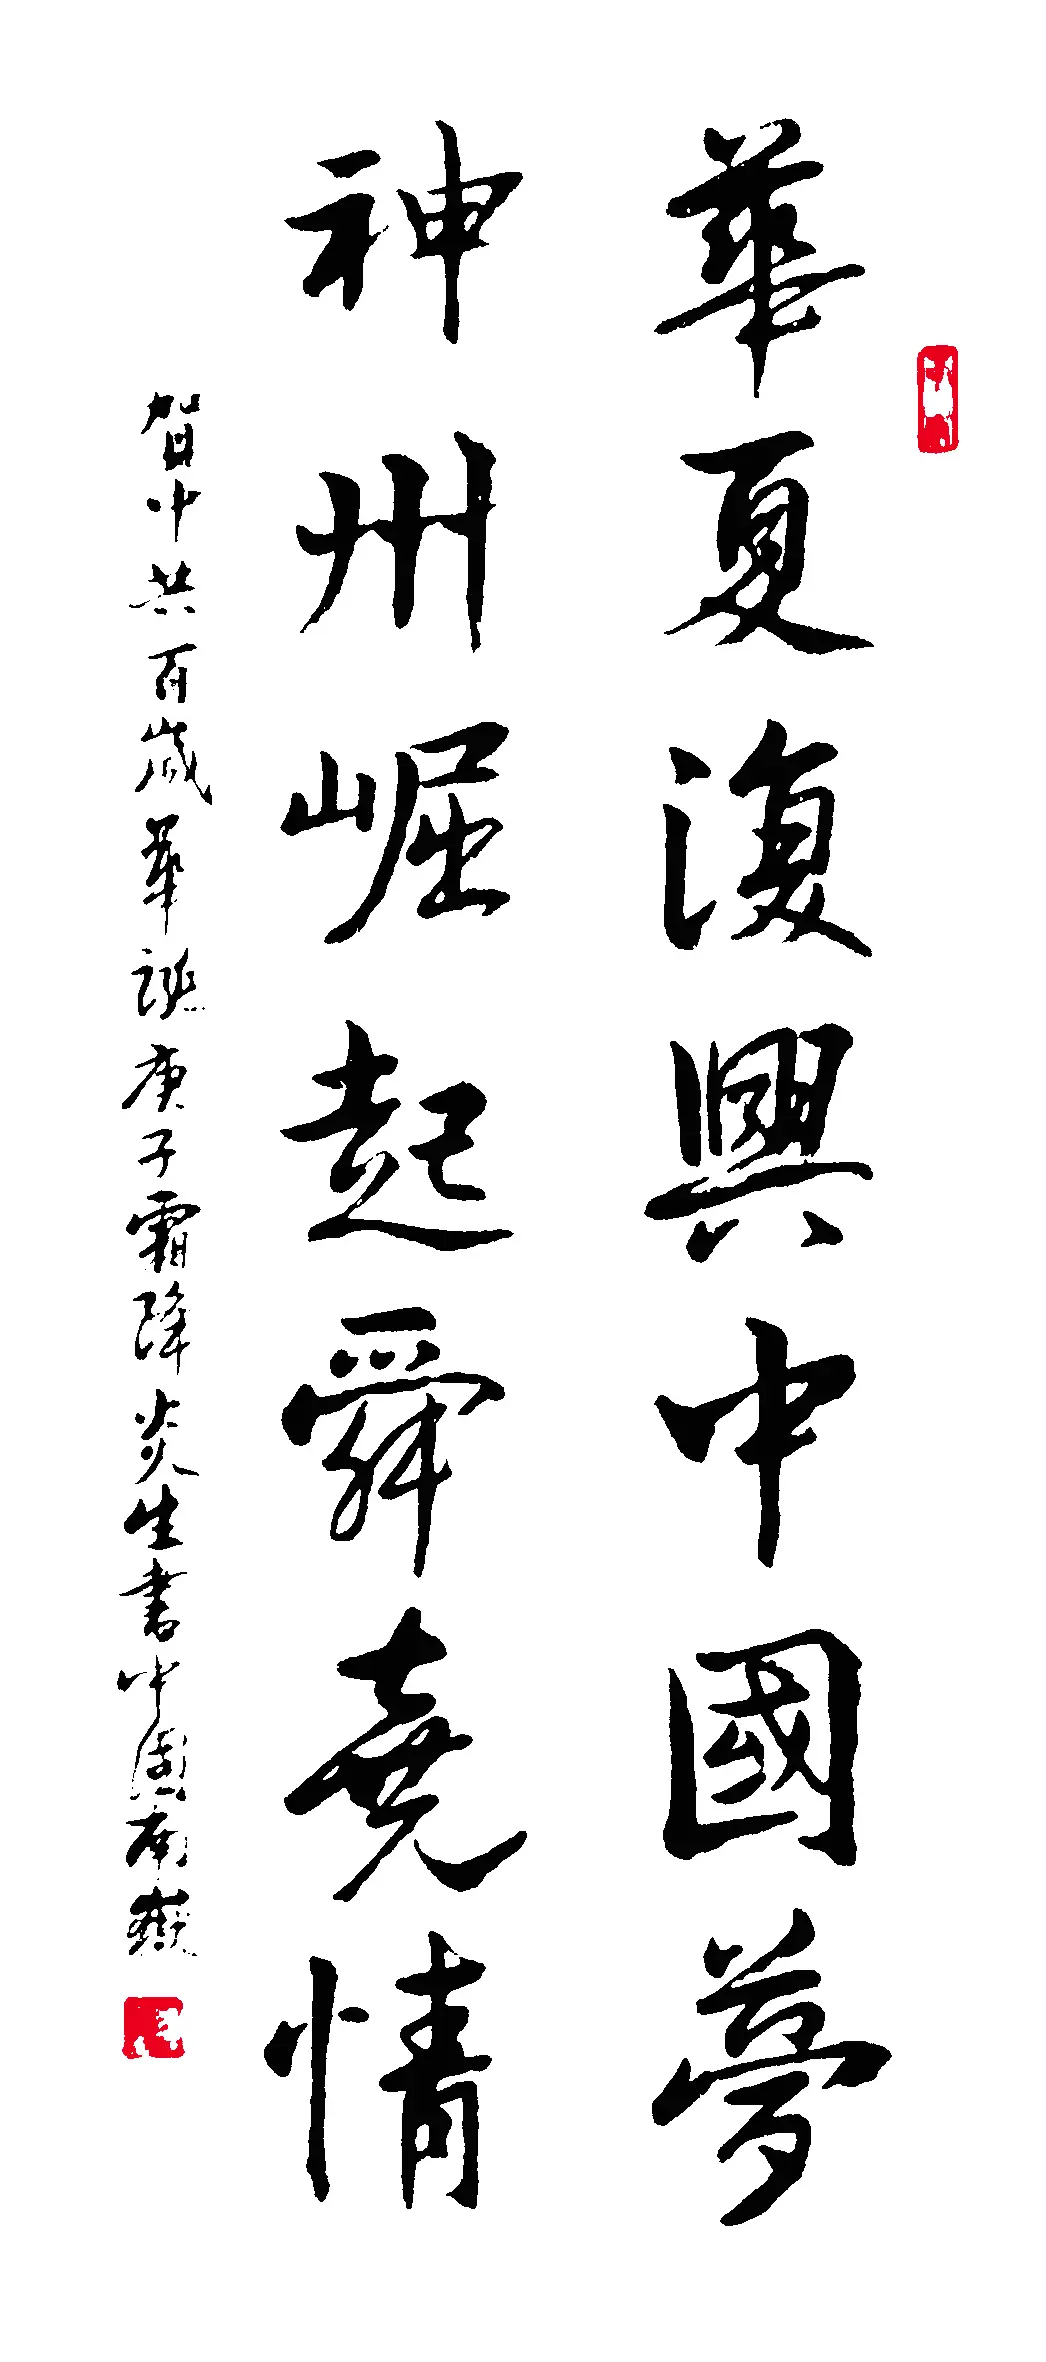 華夏復興中國夢
神州崛起舜堯情
賀中共百歲華誕庚子霜降炎生書中國南嶽